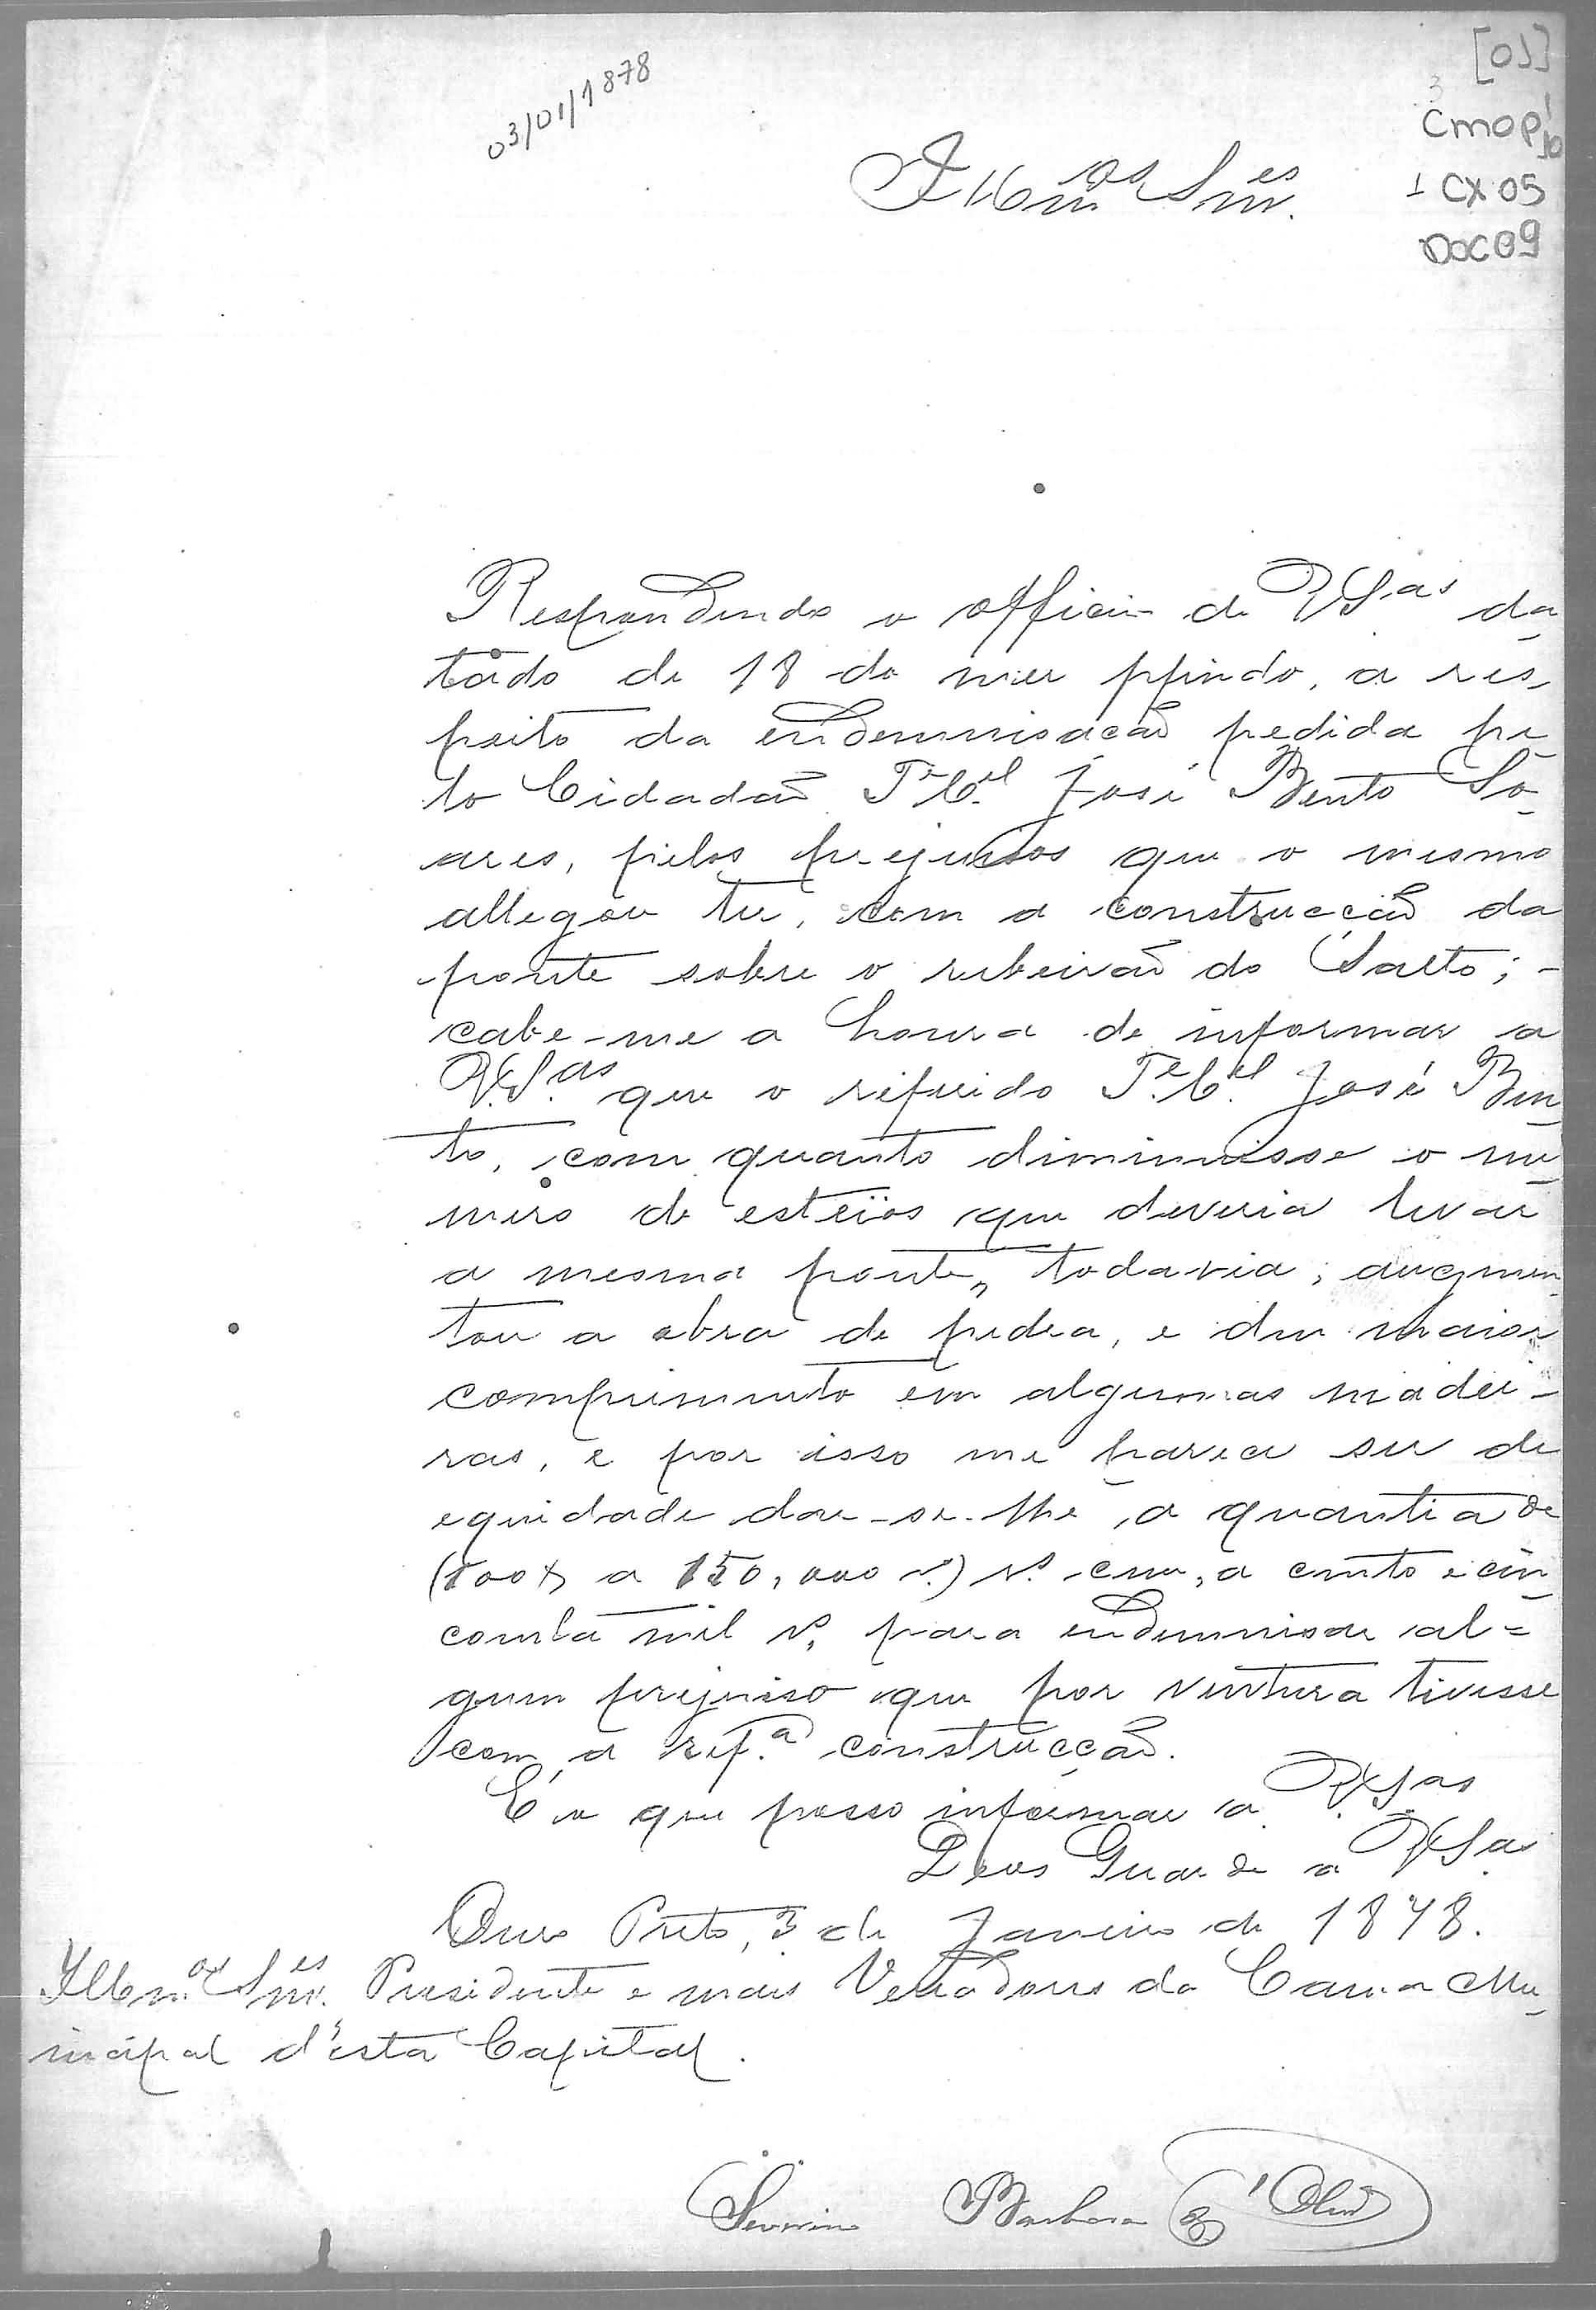 03/01/1878
[01]
CMOP
CX 05
DOC 09
Illm.os Snr.es
Respondendo o officio de VSas da
tado de 18 do mez pfindo, a res
peito da endemnisação pedida pe
lo Cidadão Te Cel José Bento So
ares, pelos prejuisos que o mesmo
allegou ter, com a construcção da
ponte sobre o ribeirão do Salto; -
cabe-me a honra de informar a
V.S.as que o referido Te. Cel. José Ben
to, com quanto diminuisse o nu
mero de esteios que deveria levar
a mesma ponte, todavia, augmen
tou a obra de pedra, e deu maior
comprimento em algumas madei-
ras, e por isso me parece ser de
equidade dar-se-lhe, a quantia de
(100$ a 150,000 r.s) r.s cem, a cento e cin
coenta mil r.s, para endemnisar al=
gum prejuiso que por ventura tivesse
com a ref.a construcção.
É o que posso informar a VSas
Deos Guarde a VSas
Ouro Preto, 3 de Janeiro de 1878.
Illm.os Snr.es Presidente e mais Veriadores da Camara Mu
nicipal d'esta Capital.
Severino Barbosa d'Olivr.a